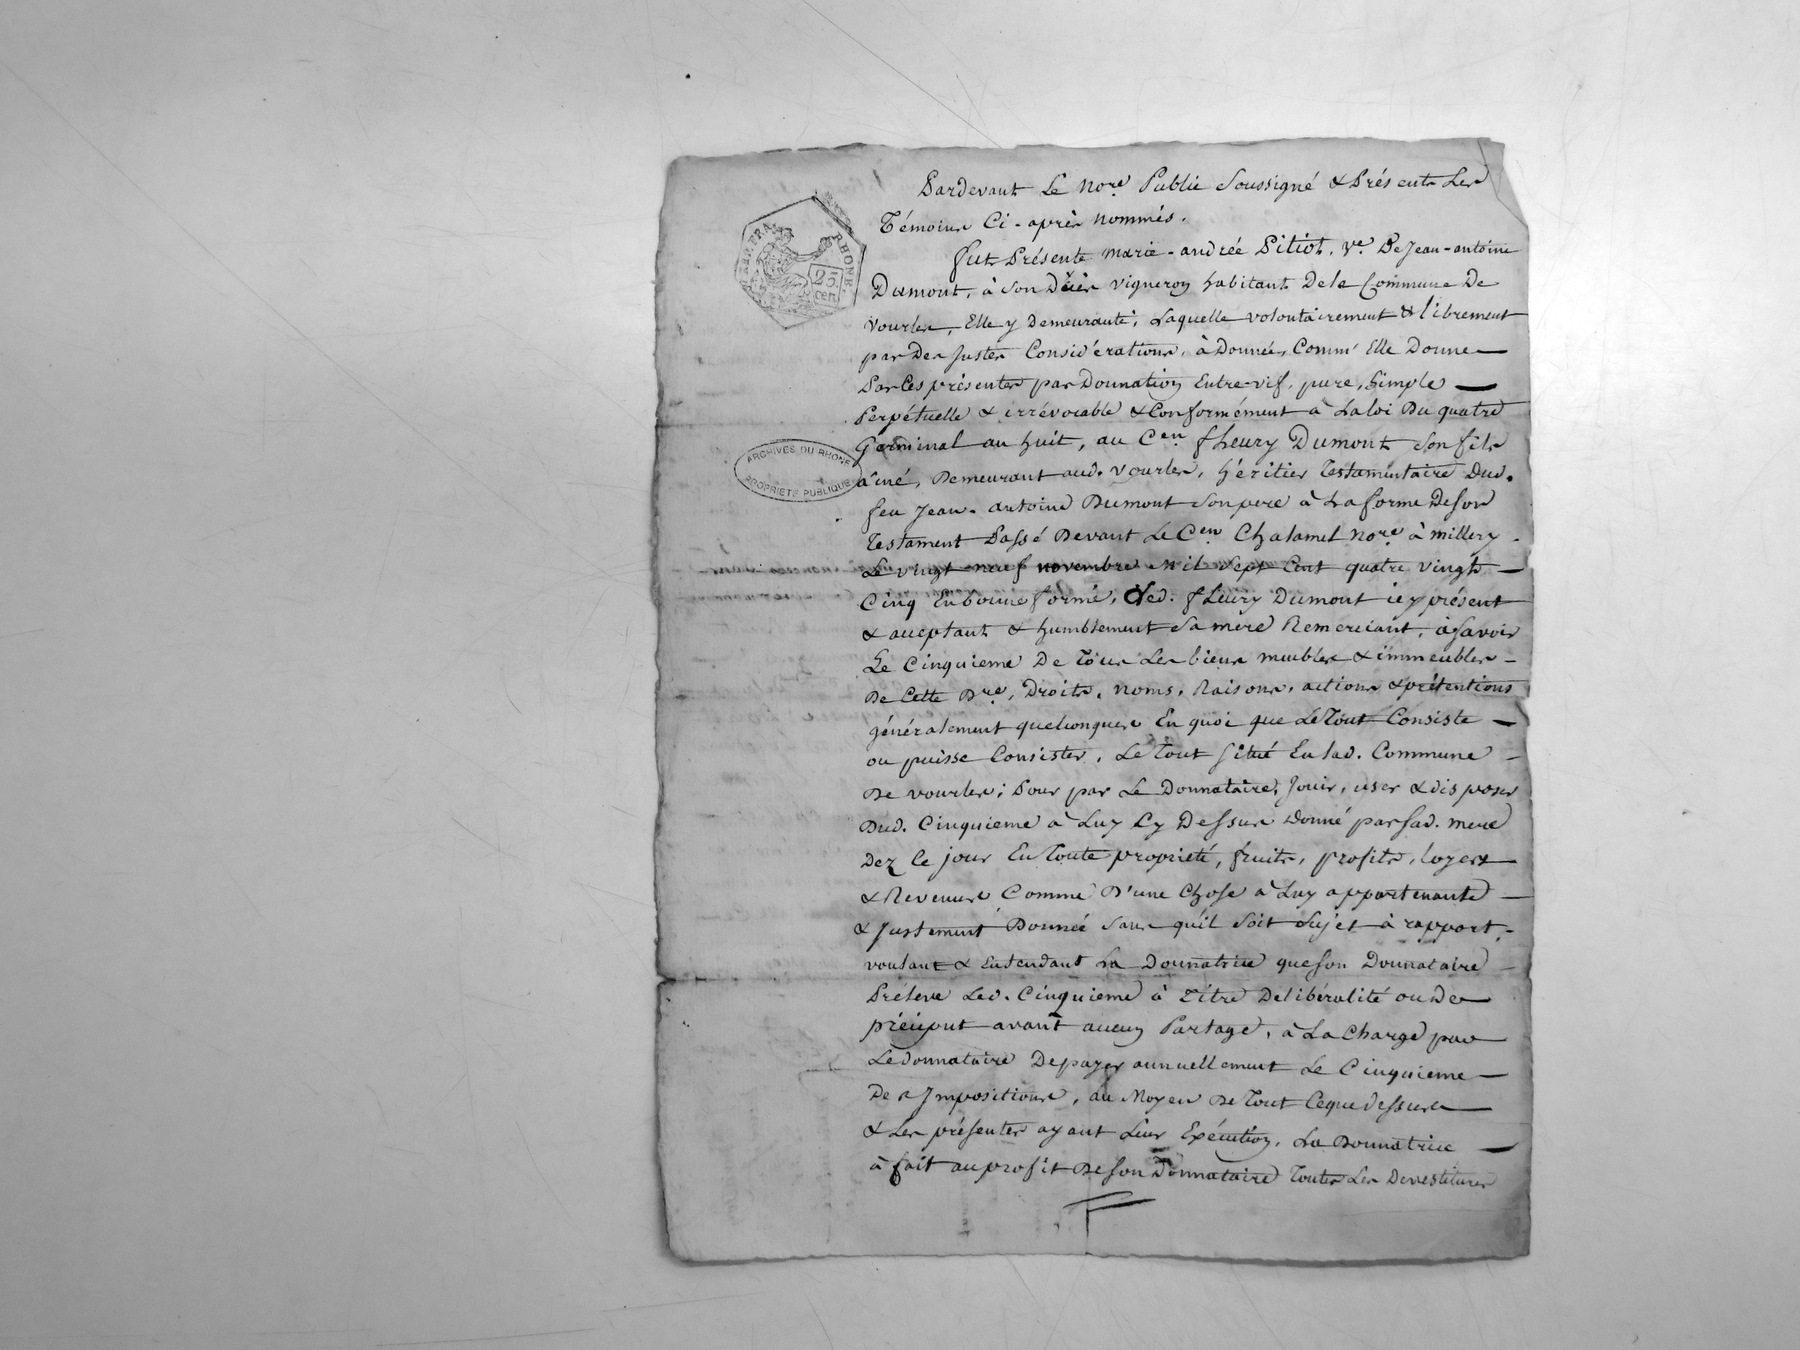 Pardevant Le no.re Public Soussigné & Présents Les
Témoins Ci-après nommés.
fut Présente marie-andrée Pitiot, v.e De Jean-antoine
Dumont, à Son Décès vigneron habitant De la Commune De
vourles, Elle y Demeurante, Laquelle volontairement & librement
par Des Justes Considérations, à Donnée, Comm' Elle Donne
Par Ces présentes par Donnation Entre-vif, pure, Simple
Perpétuelle & irrévocable & Conformément à La loi Du quatre
Germinal an huit, au C.en fleury Dumont Son fils
aîné, Demeurant aud. vourles, héritier Testamentaire Dud.
feu Jean-antoine Dumont Son pere à La forme De Son
Testament Passé Devant Le C.en Chalamel No.re à millery
Le vingt-neuf novembre Mil Sept Cent quatre vingt
Cinq En bonne forme, Led. fleury Dumont icy présent
& acceptant & humblement Sa mere Remerciant, à Savoir
Le Cinquieme De Tous Les biens meubles & immeubles
De Cette D.re, Droits, noms, Raisons, actions & prétentions
généralement quelconques En quoi que Le Tout Consiste
ou puisse Consister, Le Tout Situé En lad. Commune
De vourles; Pour par Le Donnataire, Jouir, user & disposer
Dud. Cinquieme à Luy Cy Dessus Donné par Sad. mere
Dez Ce jour En Toute propriété, fruits, profits, loyers
& Revenus Comme D'une Chose à Luy appartenante
& Justement Donnée Sans qu'il Soit Sujet à rapport,
voulant & Entendant La Donnatrice que Son Donnataire
Préleve Led. Cinquieme à Titre De libéralité ou De
préciput avant aucun Partage, à La Charge par
Le donnataire De payer annuellement Le Cinquieme
Des Impositions, au Moyen De Tout Ce que dessus
& Les présentes ayant Leur Exécution, La Donnatrice
à fait au profit De Son Donnataire Toutes Les Devestitures
RHONE
25
cen
ARCHIVES DU RHONE
PROPRIETE PUBLIQUE